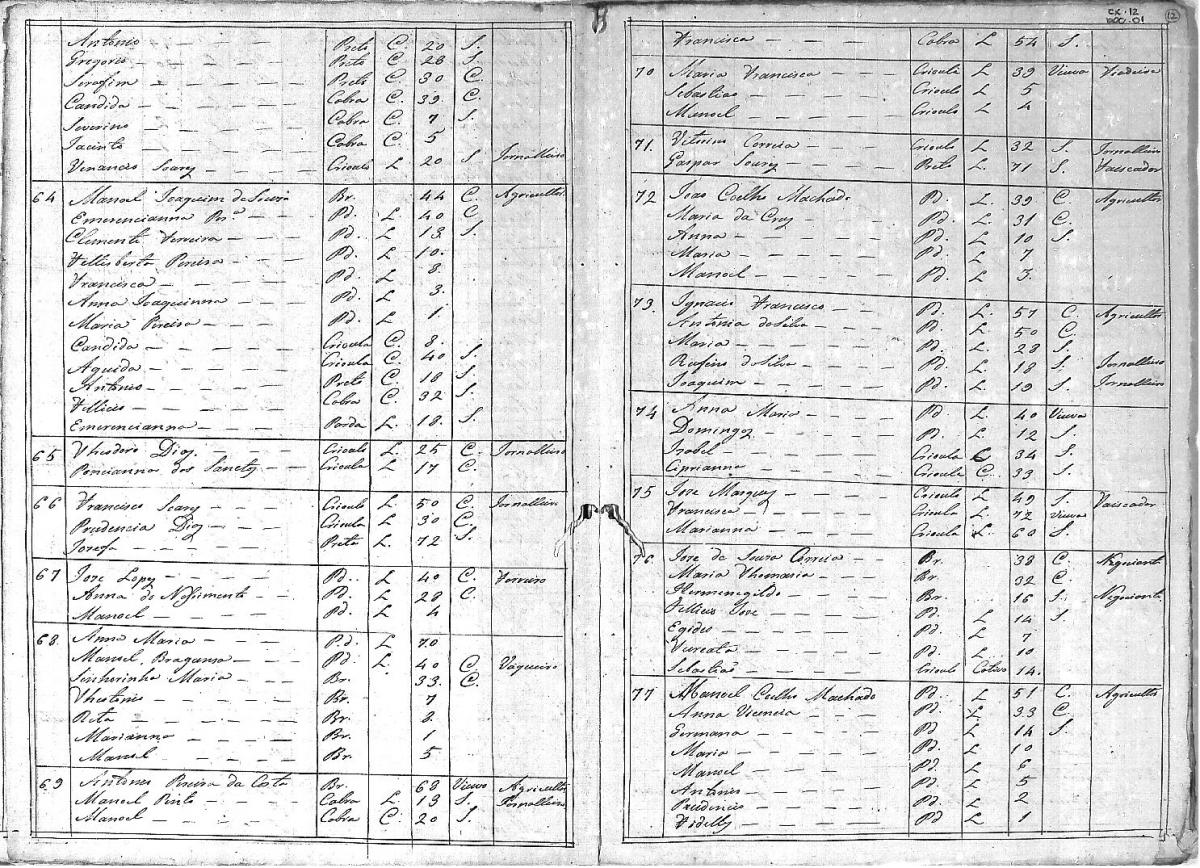 Antonio Preto C. 20 S.
Gregorio Preto C. 28 S.
Serafim Preto C. 30 C.
Candida Cabra C. 39 C.
Severino Cabra C. 7 S.
Jacinto Cabra C. 5
Venancio Soarez Crioulo L. 20 S Jornalleiro
64 Manoel Joaquim de Souza Br. 44 C. Agricultor
Emerencianna Pd. L 40 C
Clemente Ferreira Pd. L 13 S.
Fellisberta Pereira Pd. L 10.
Francisca Pd. L 8
Anna Joaquinna Pd. L 3.
Maria Pereira Pd. L 1
Candida Crioula C. 8.
Aguida Crioula C. 40 S.
Antonio Preto C. 18 S.
Fellicio Cabra C. 32 S.
Emerencianna Parda L. 18. S.
65 Theodoro Diaz Crioulo L. 25 C. Jornalleiro
Poncianna dos Sanctoz Crioula L 17 C.
66 Francisco Soarez Crioulo L 50 C. Jornalleiro
Prudencia Diaz Crioula L 30 C.
Josefa Preta L. 72 S.
67 Jose Lopez Pd. L 40 C. Ferreiro
Anna do Nascimento Pd. L 28 C.
Manoel Pd. L 4
68. Anna Maria Pd. L 70
Manoel Bragansa Pd. L. 40 C. Vaqueiro
Senhorinha Maria Br. 33 C.
Theotonio Br. 7
Rita Br. 2
Marianna Br. 1
Manoel Br. 5
69 Antonio Pereira da Costa Br. 68 Viuvo Agricultor
Manoel Pinto Cabra L. 13 S. Jornalleiro
Manoel Cabra C. 20 S.
CX. 12
DOC. 01
12
Francisca Cabra L 54 S.
70 Maria Francisca Crioula L. 39 Viuva Fiadeira
Sebastiao Crioulo L 5
Manoel Crioulo L 4
71. Vitorino Correia Crioulo L. 32 S. Jornalleiro
Gaspar Soarez Preto L. 71 S. Paescador
72 Joao Coelho Machado Pd. L. 39 C. Agricultor
Maria da Cruz Pd L 31 C.
Anna Pd. L 10 S.
Maria Pd. L 7
Manoel Pd. L 3.
73. Ignacio Francisco Pd. L. 57 C. Agricultor
Antonia da Silva Pd. L 50 C.
Maria Pd. L. 28 S.
Rufino da Silva Pd. L 18 S. Jornalleiro
Joaquim Pd. L 19 S. Jornalleiro
74 Anna Maria Pd L. 40 Viuva
Domingoz Pd. L 12 S.
Izabel Crioula C 34 S.
Ciprianna Crioula C. 33 S.
75 Jose Marquez Crioulo L 49 S. Paescador
Francisca Crioula L. 72 Viuva
Marianna Crioula L. 60 S.
76 Jose de Souza Correia Br. 38 C. Negociante
Maria Thomazia Br. 32 C.
Hermenegildo Br. 16 S. Negociante
Fellicio Jose Pd. L 14 S.
Egideo Pd L 7
Laureata Pd. L 10
Sebastiao Crioulo Cativo 14.
77 Manoel Coelho Machado Pd. L 51 C. Agricultor
Anna Vicencia Pd. L 33 C.
Germana Pd L 14 S.
Maria Pd. L 10
Manoel Pd. L 6
Antonio Pd. L 5
Prudencio Pd. L 2
Fidelly Pd L 1